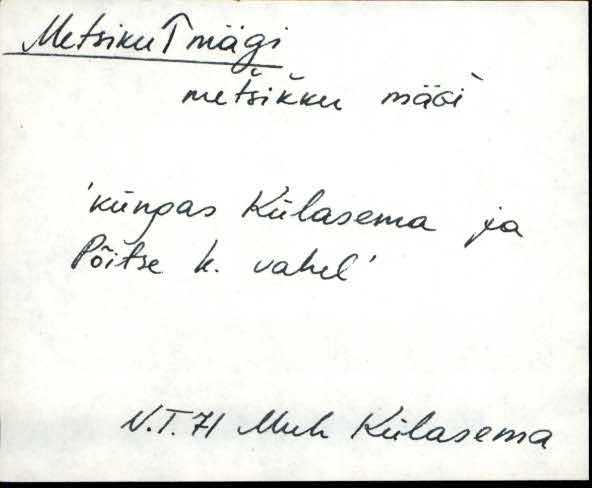 Metsiku mägi
metšikku mäGi`
'küngas Külasema ja
Põitse k. vahel'
N.T.71 Muh Külasema